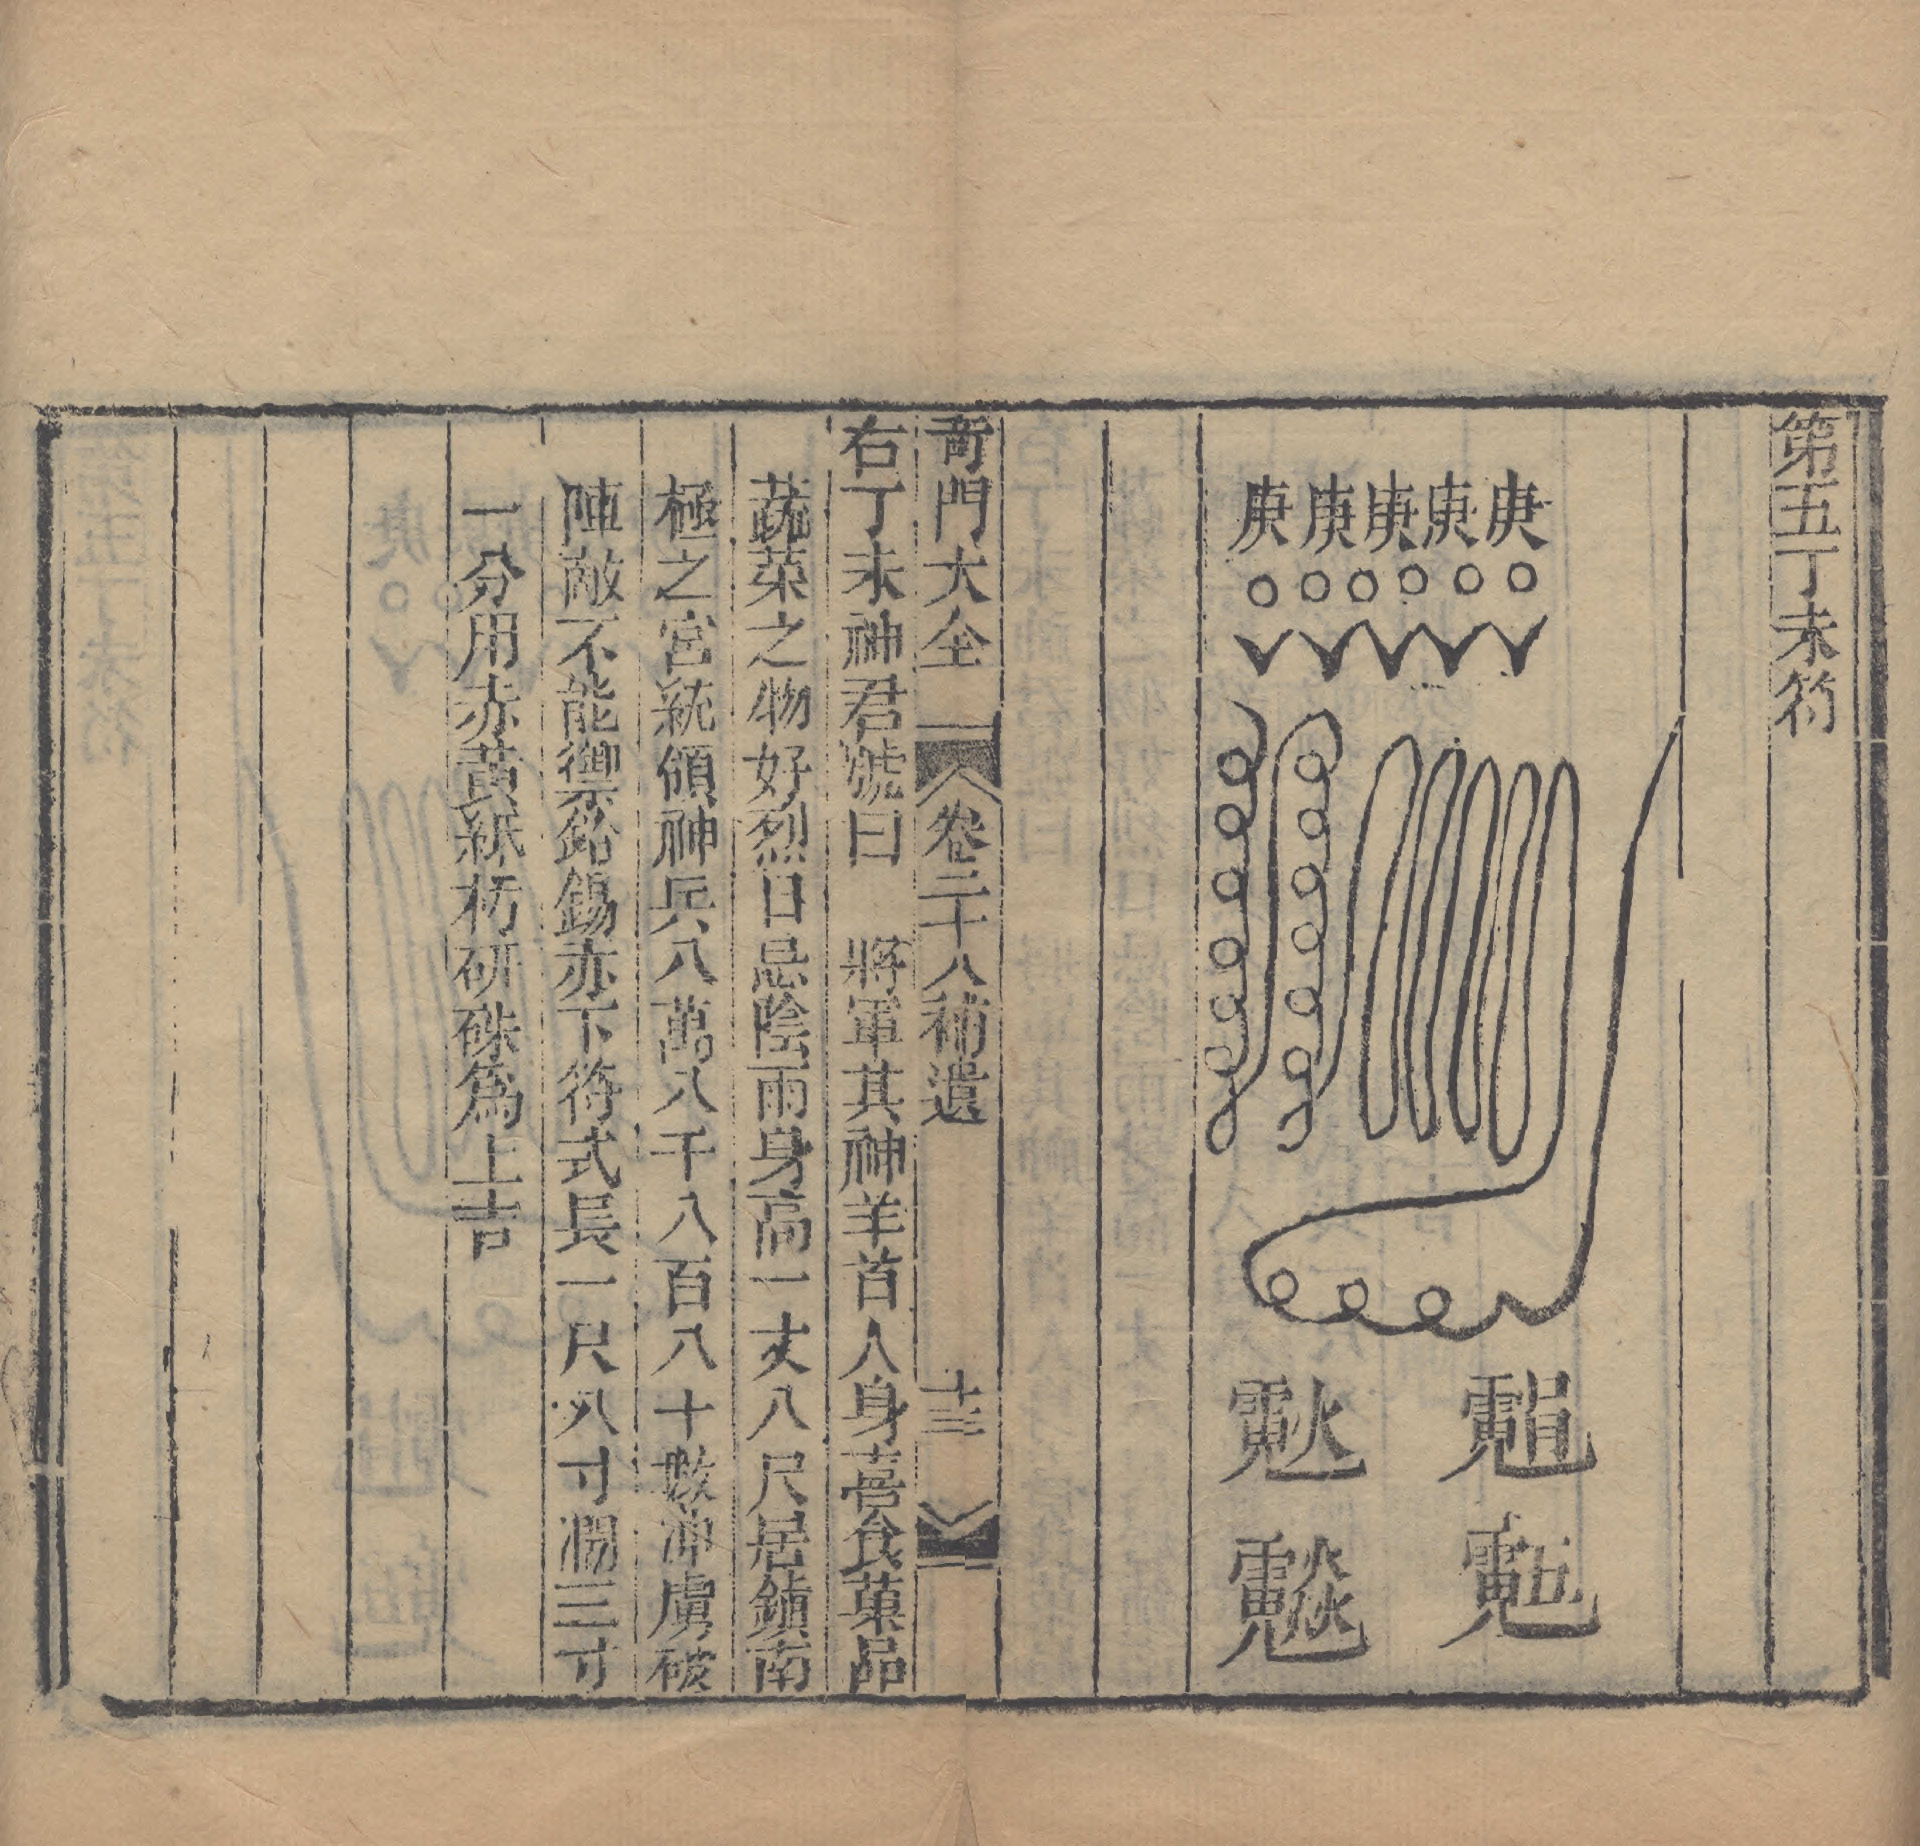 第五丁未符
庚庚庚庚庚
奇門大全 卷二十八補遺 十三
右丁未神君號曰 將軍其神羊首人身喜食菓品
蔬菜之物好烈日忌陰雨身高一丈八尺居鎮南
極之宮統領神兵八萬八千八百八十數冲虜破
陣敵不能禦鉛錫亦下符式長一尺八寸濶三寸
一分用赤黃紙朽研硃為上吉